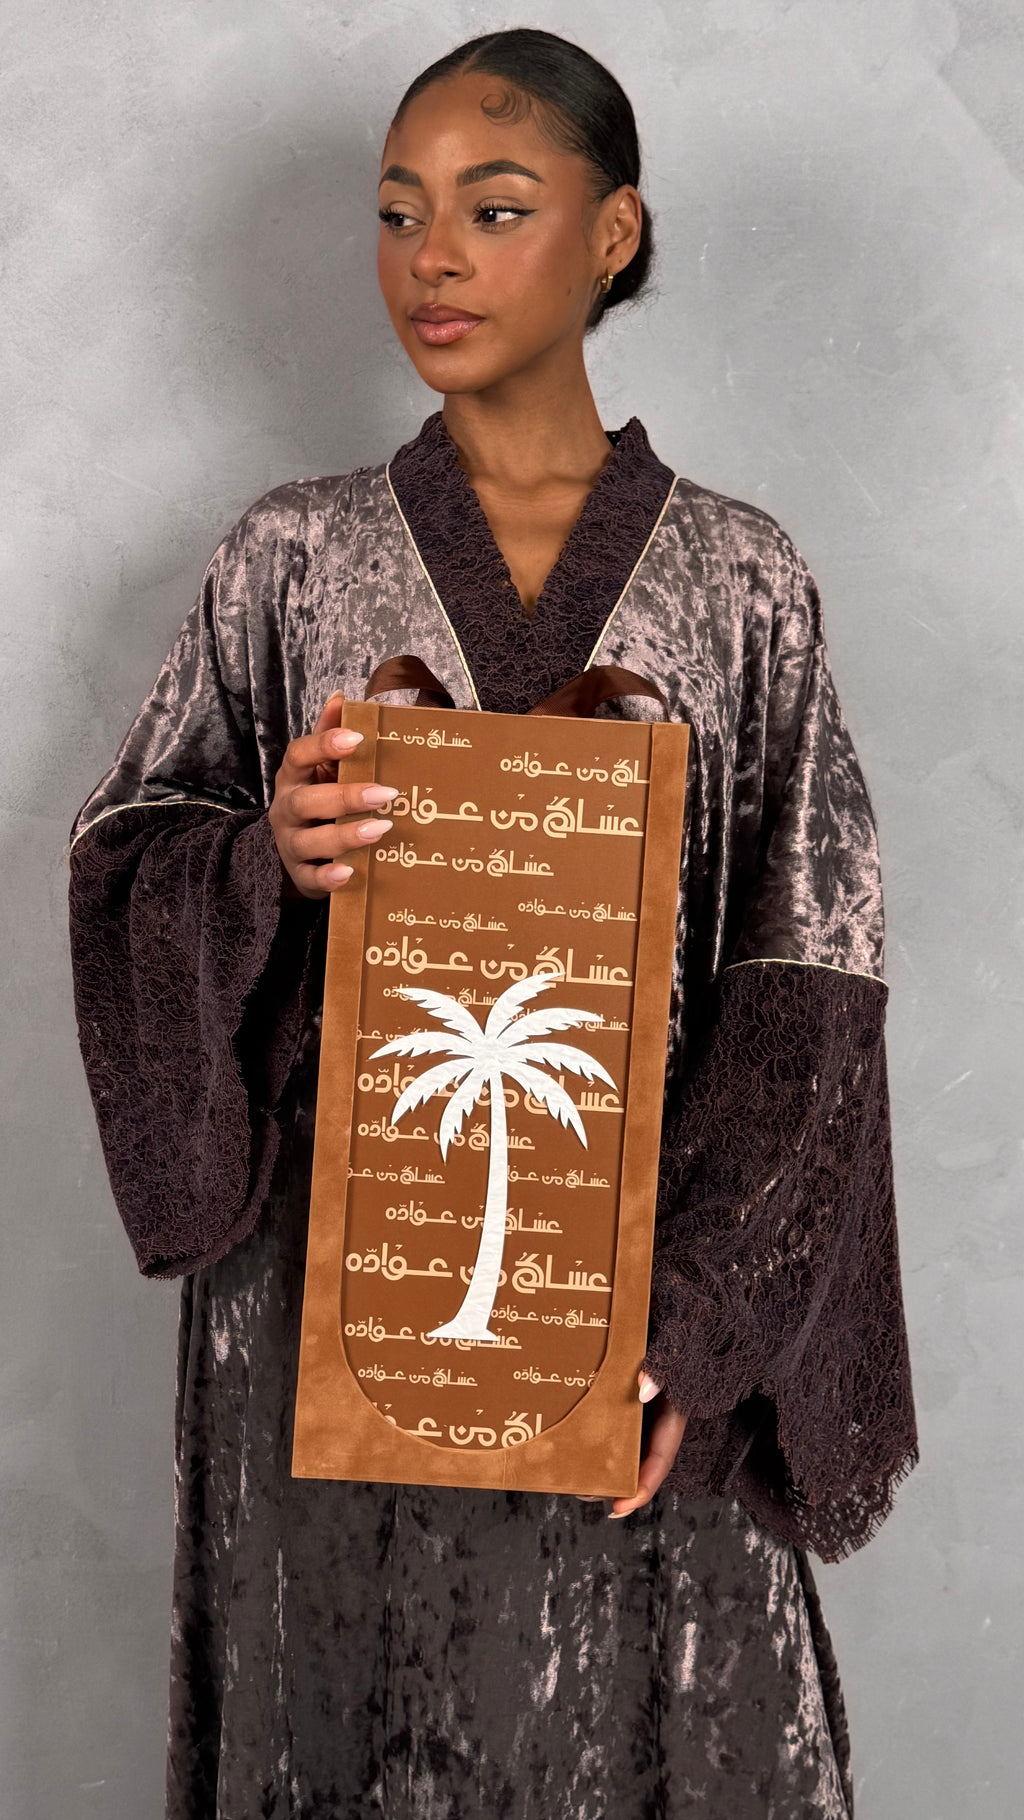 عساكم من عواده
عساكم من عوّاده
عساكم من عوّاده
عساكم من عوّاده
عساكم من عوّاده
عساكم من عوّاده
عساكم من عوّاده
عساكم من
عساكم من عوّاده
عساكم من عوّاده
عساكم من عوّاده
عساكم من عوّاده
عساكم من عوّاده
عساكم من عوّاده
عساكم من عوّاده
عساكم من عوّاده
عساكم من عوّاده
عساكم من عوّاده
عساكم من عوّاده
عساكم من